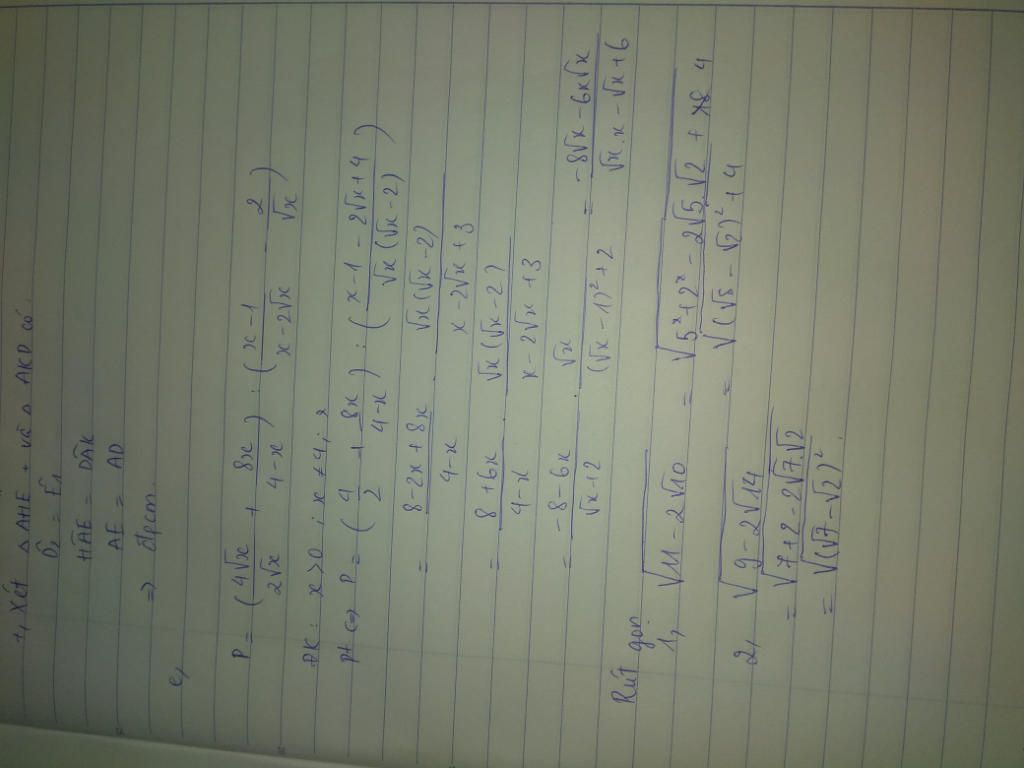 +, Xét △ AHE + và △ AKD có
D̂₂ = Ê₁
HÂE = DÂK
AE = AD
=> đpcm.
c,
P = (4√x / 2√x + 8x / 4-x) : (x-1 / x-2√x - 2 / √x)
ĐK: x > 0 ; x ≠ 4 ;
pt <=> P = (4 / 2 + 8x / 4-x) : (x-1-2√x+4 / √x(√x-2))
= 8-2x+8x / 4-x . √x(√x-2) / x-2√x+3
= 8+6x / 4-x . √x(√x-2) / x-2√x+3
= -8-6x / √x+2 . √x / (√x-1)²+2 = -8√x-6x√x / √x.x-√x+6
Rút gọn
1, √11-2√10 = √5²+2²-2√5.√2+4
= √(√5-√2)²+4
2, √9-2√14
= √7+2-2√7.√2
= √(√7-√2)²